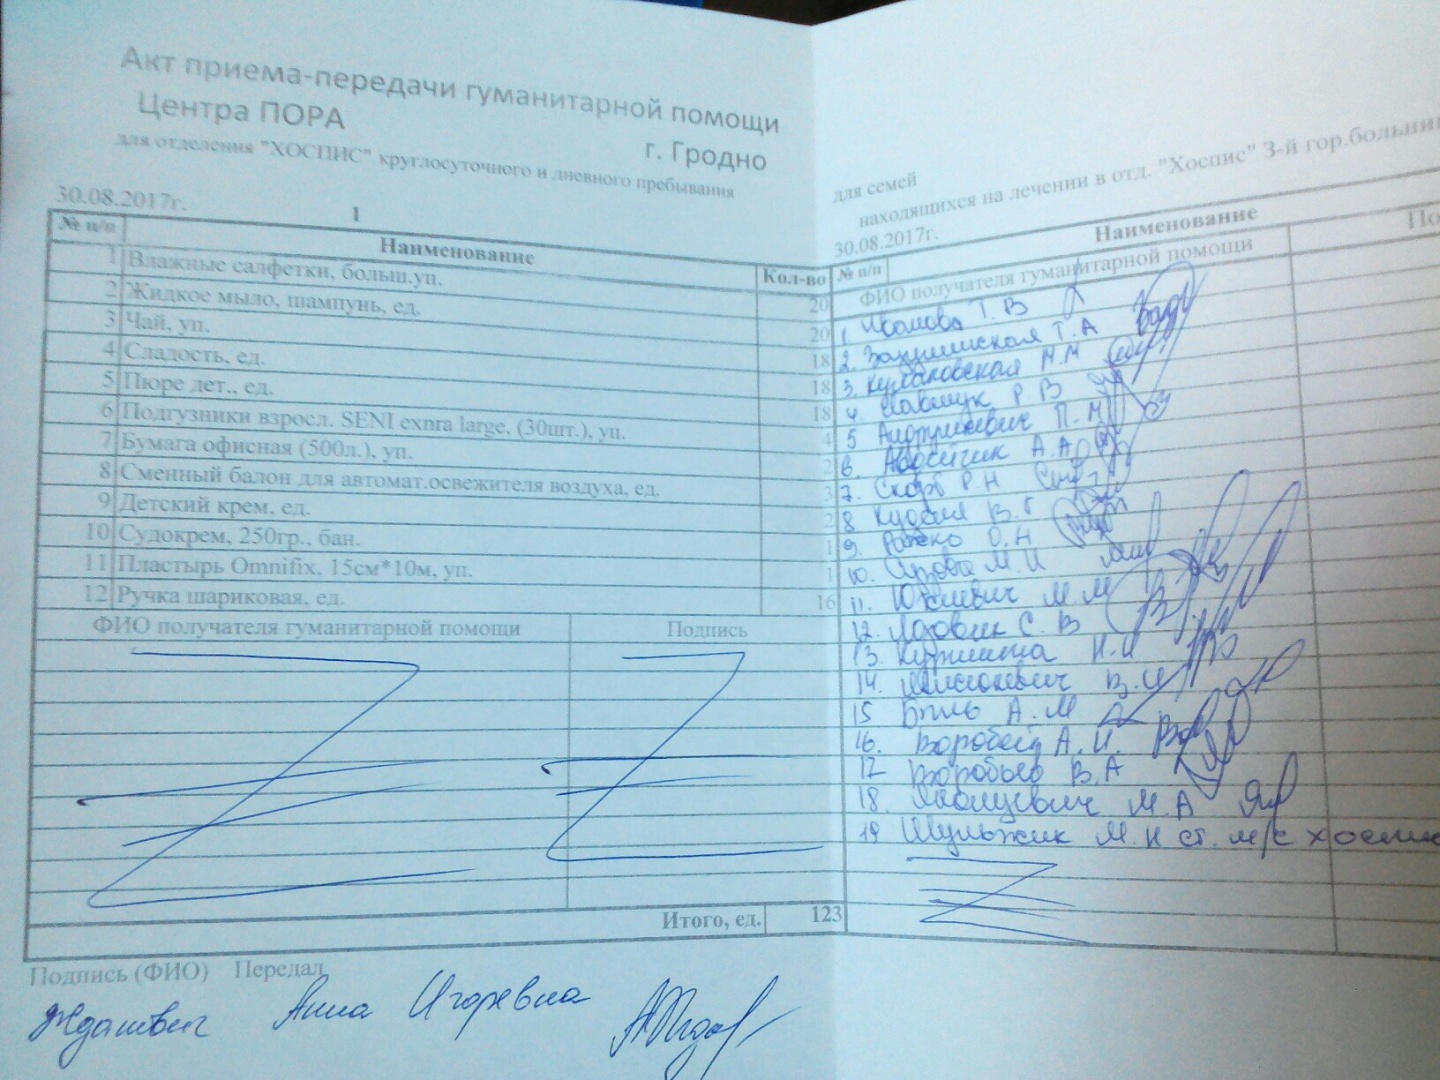 Акт приема-передачи гуманитарной помощи
Центра ПОРА
г. Гродно
для отделения "ХОСПИС" круглосуточного и дневного пребывания
30.08.2017г.
1
№ п/п Наименование Кол-во
1 Влажные салфетки, больш.уп. 20
2 Жидкое мыло, шампунь, ед. 20
3 Чай, уп. 18
4 Сладость, ед. 18
5 Пюре дет., ед. 18
6 Подгузники взросл. SENI exnra large, (30шт.), уп. 4
7 Бумага офисная (500л.), уп. 2
8 Сменный балон для автомат.освежителя воздуха, ед. 3
9 Детский крем, ед. 2
10 Судокрем, 250гр., бан. 1
11 Пластырь Omnifix. 15см*10м, уп. 1
12 Ручка шариковая, ед. 16
ФИО получателя гуманитарной помощи Подпись
Итого, ед. 123
Подпись (ФИО) Передал
Жданович Анна Игоревна
для семей
находящихся на лечении в отд. "Хоспис" 3-й гор.больни
30.08.2017г.
№ п/п Наименование
ФИО получателя гуманитарной помощи По
1. Т. В
2. Т. А
3. М.М
4. Р В
5 П. М
6. А. А
7. Скорб Р. Н
8 В. Г
9. О. Н
10. М. И
11. М. М
12. С. В
13. Н. И
14. В. И
15 А. М
16. Воробей А. И.
17 Воробьев В. А
18. М. А
19 Шульжик М. Н ст. м/с хоспис